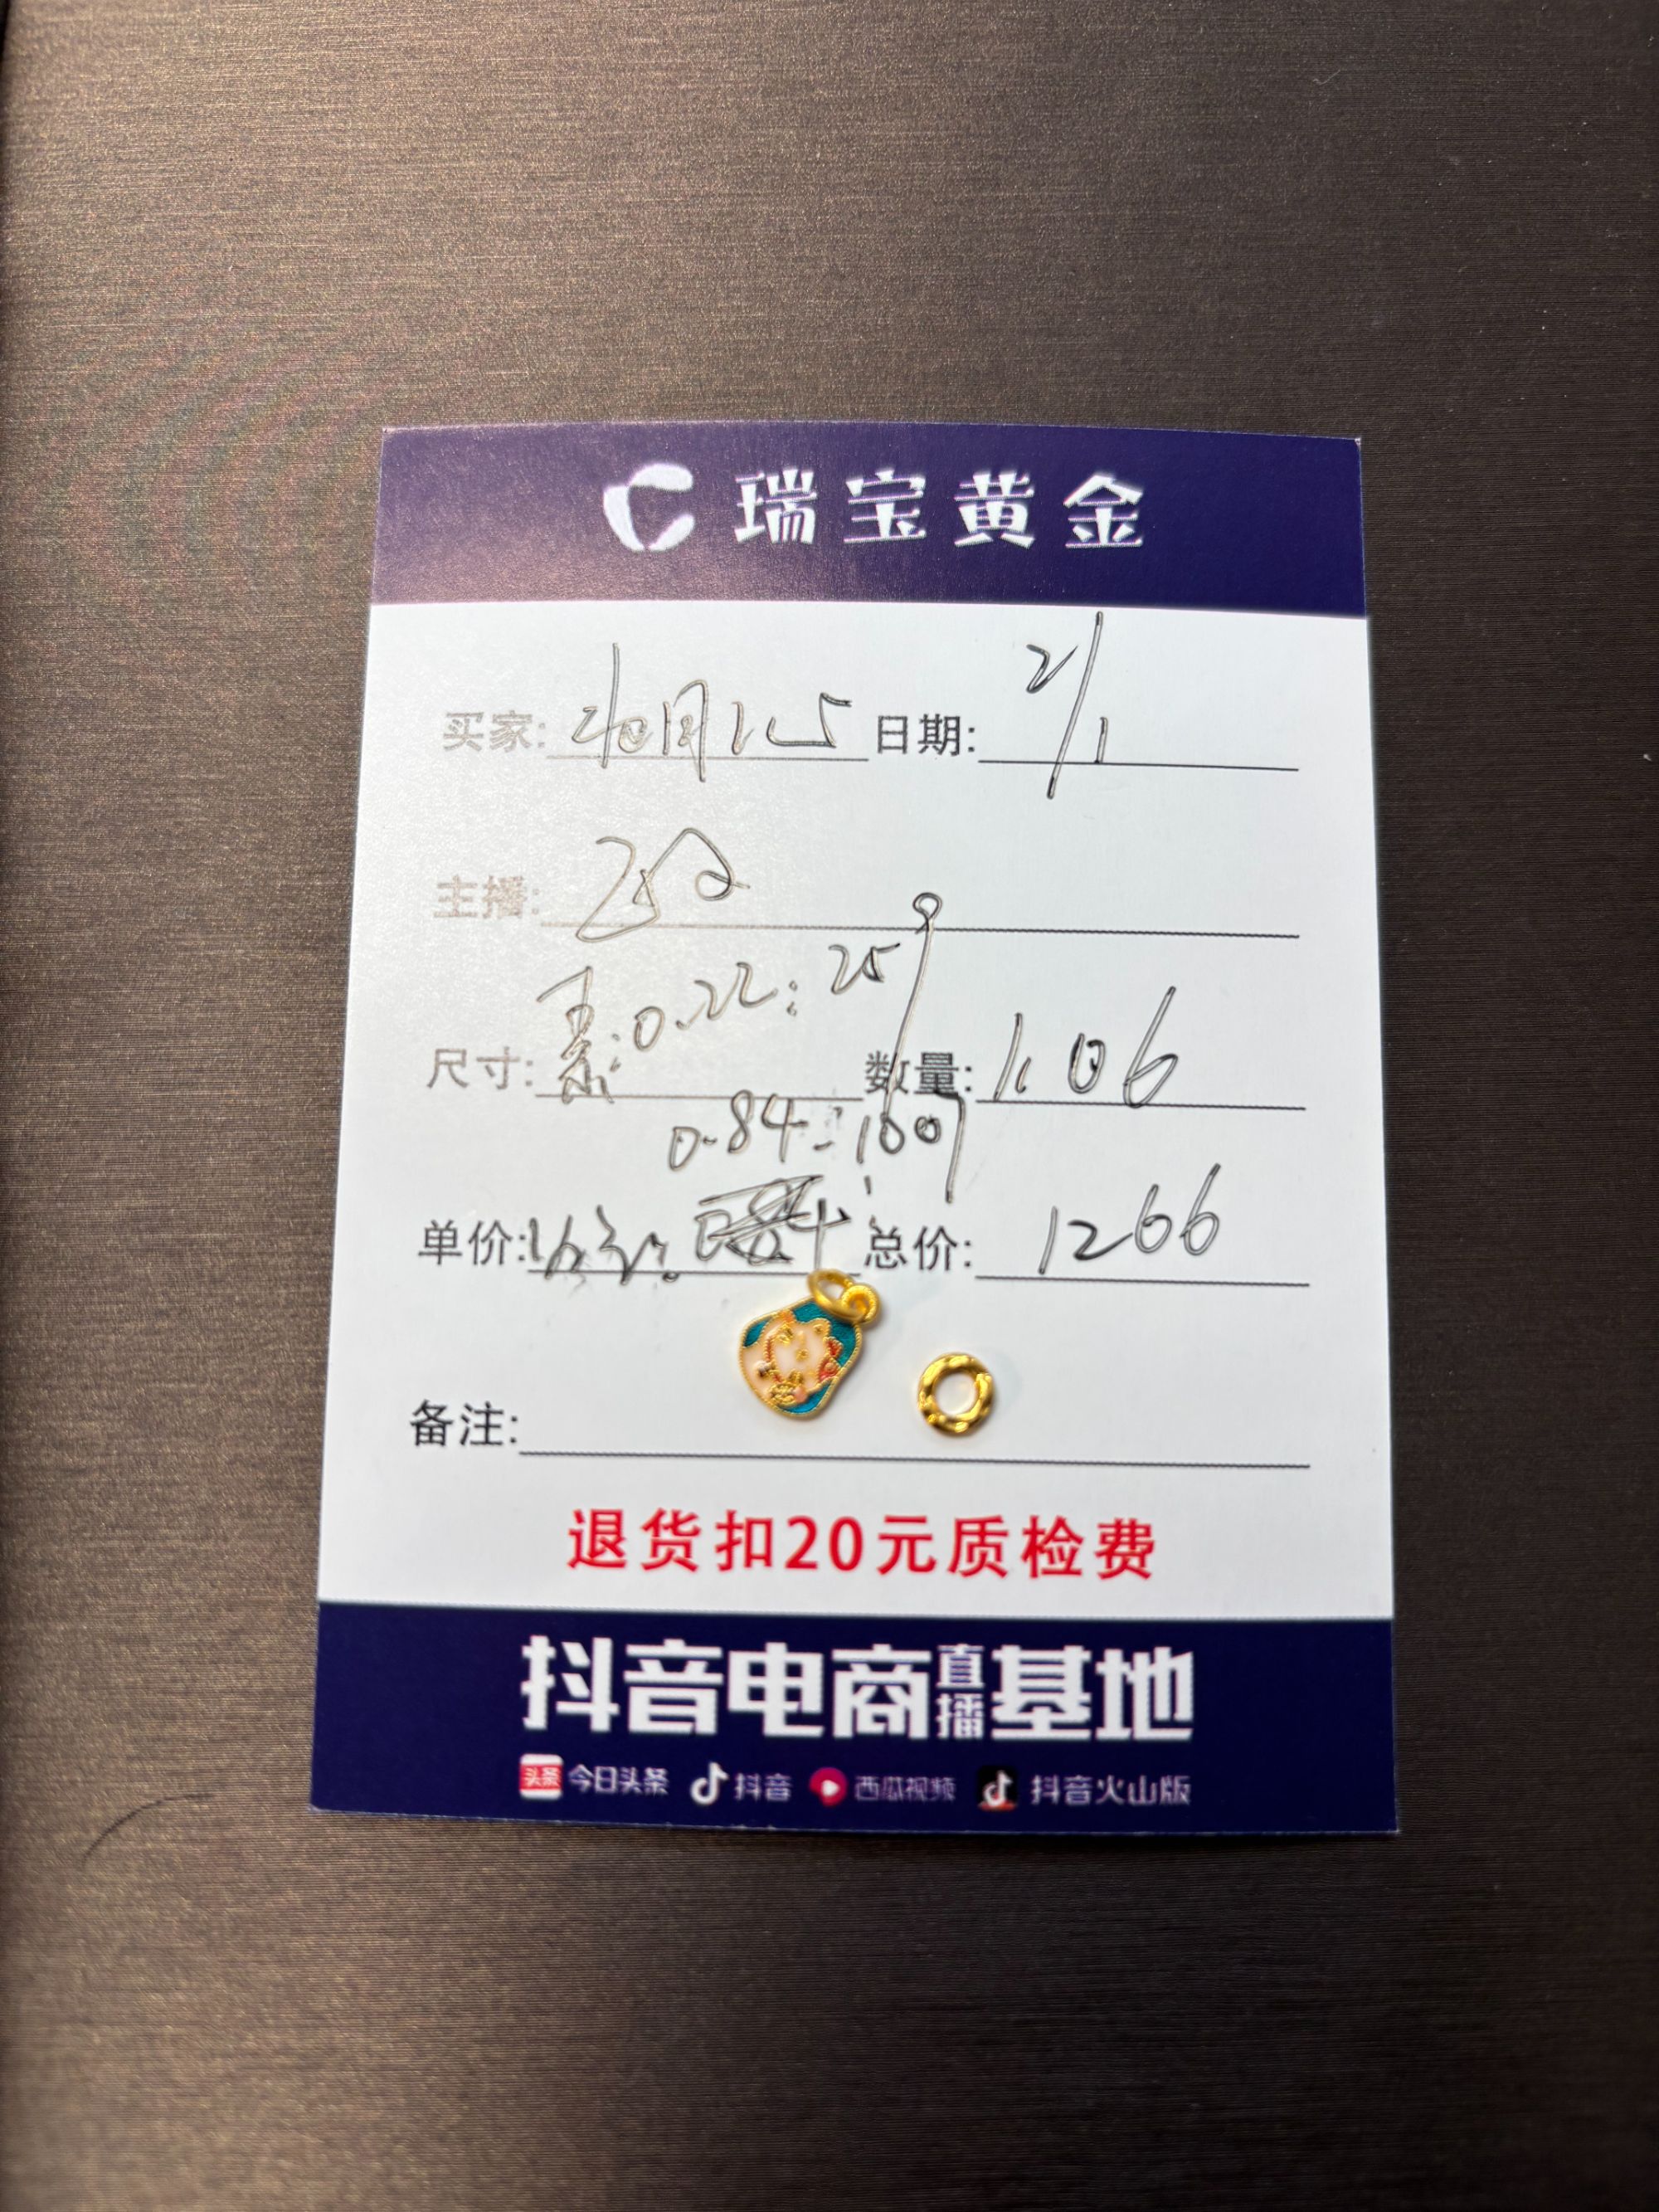 瑞宝黄金
买家: 日期: 2/1
主播:
素:0.22:259
尺寸: 数量: 1.06
0.84-1007
单价: 总价: 1266
备注:
退货扣20元质检费
抖音电商直播基地
头条 今日头条 抖音 西瓜视频 抖音火山版